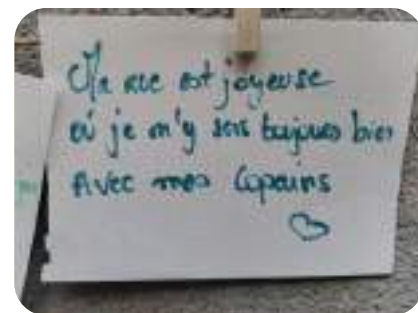 Ma rue est joyeuse
où je m'y sens toujours bien
Avec mes Copains